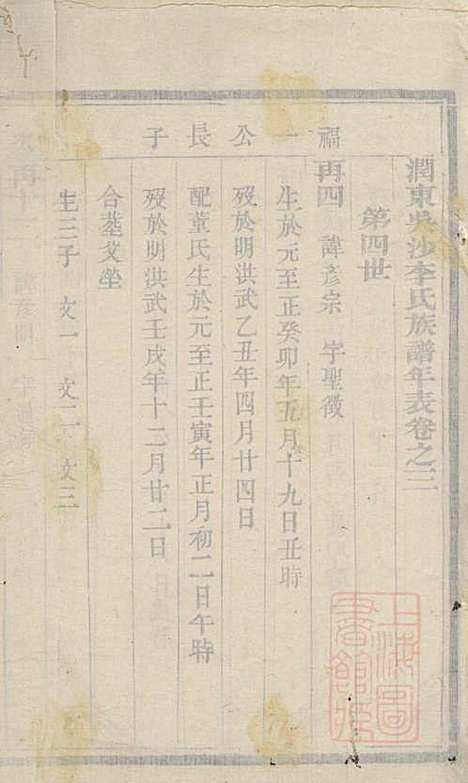 潤東吳沙李氏族譜年表卷之三
第四世
福一公長子
再四 諱彥宗 字聖徵
生於元至正癸卯年五月十九日丑時
歿於明洪武乙丑年四月廿四日
配董氏生於元至正壬寅年正月初二日午時
歿於明洪武壬戌年十二月廿二日
合葬父塋
生三子 文一 文二 文三
上海圖書館藏